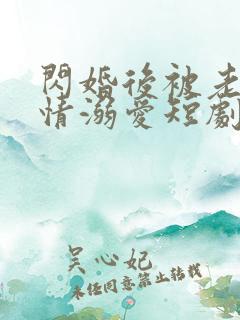 閃婚後被老
情溺愛短劇
吴心妃
未经同意禁止转载